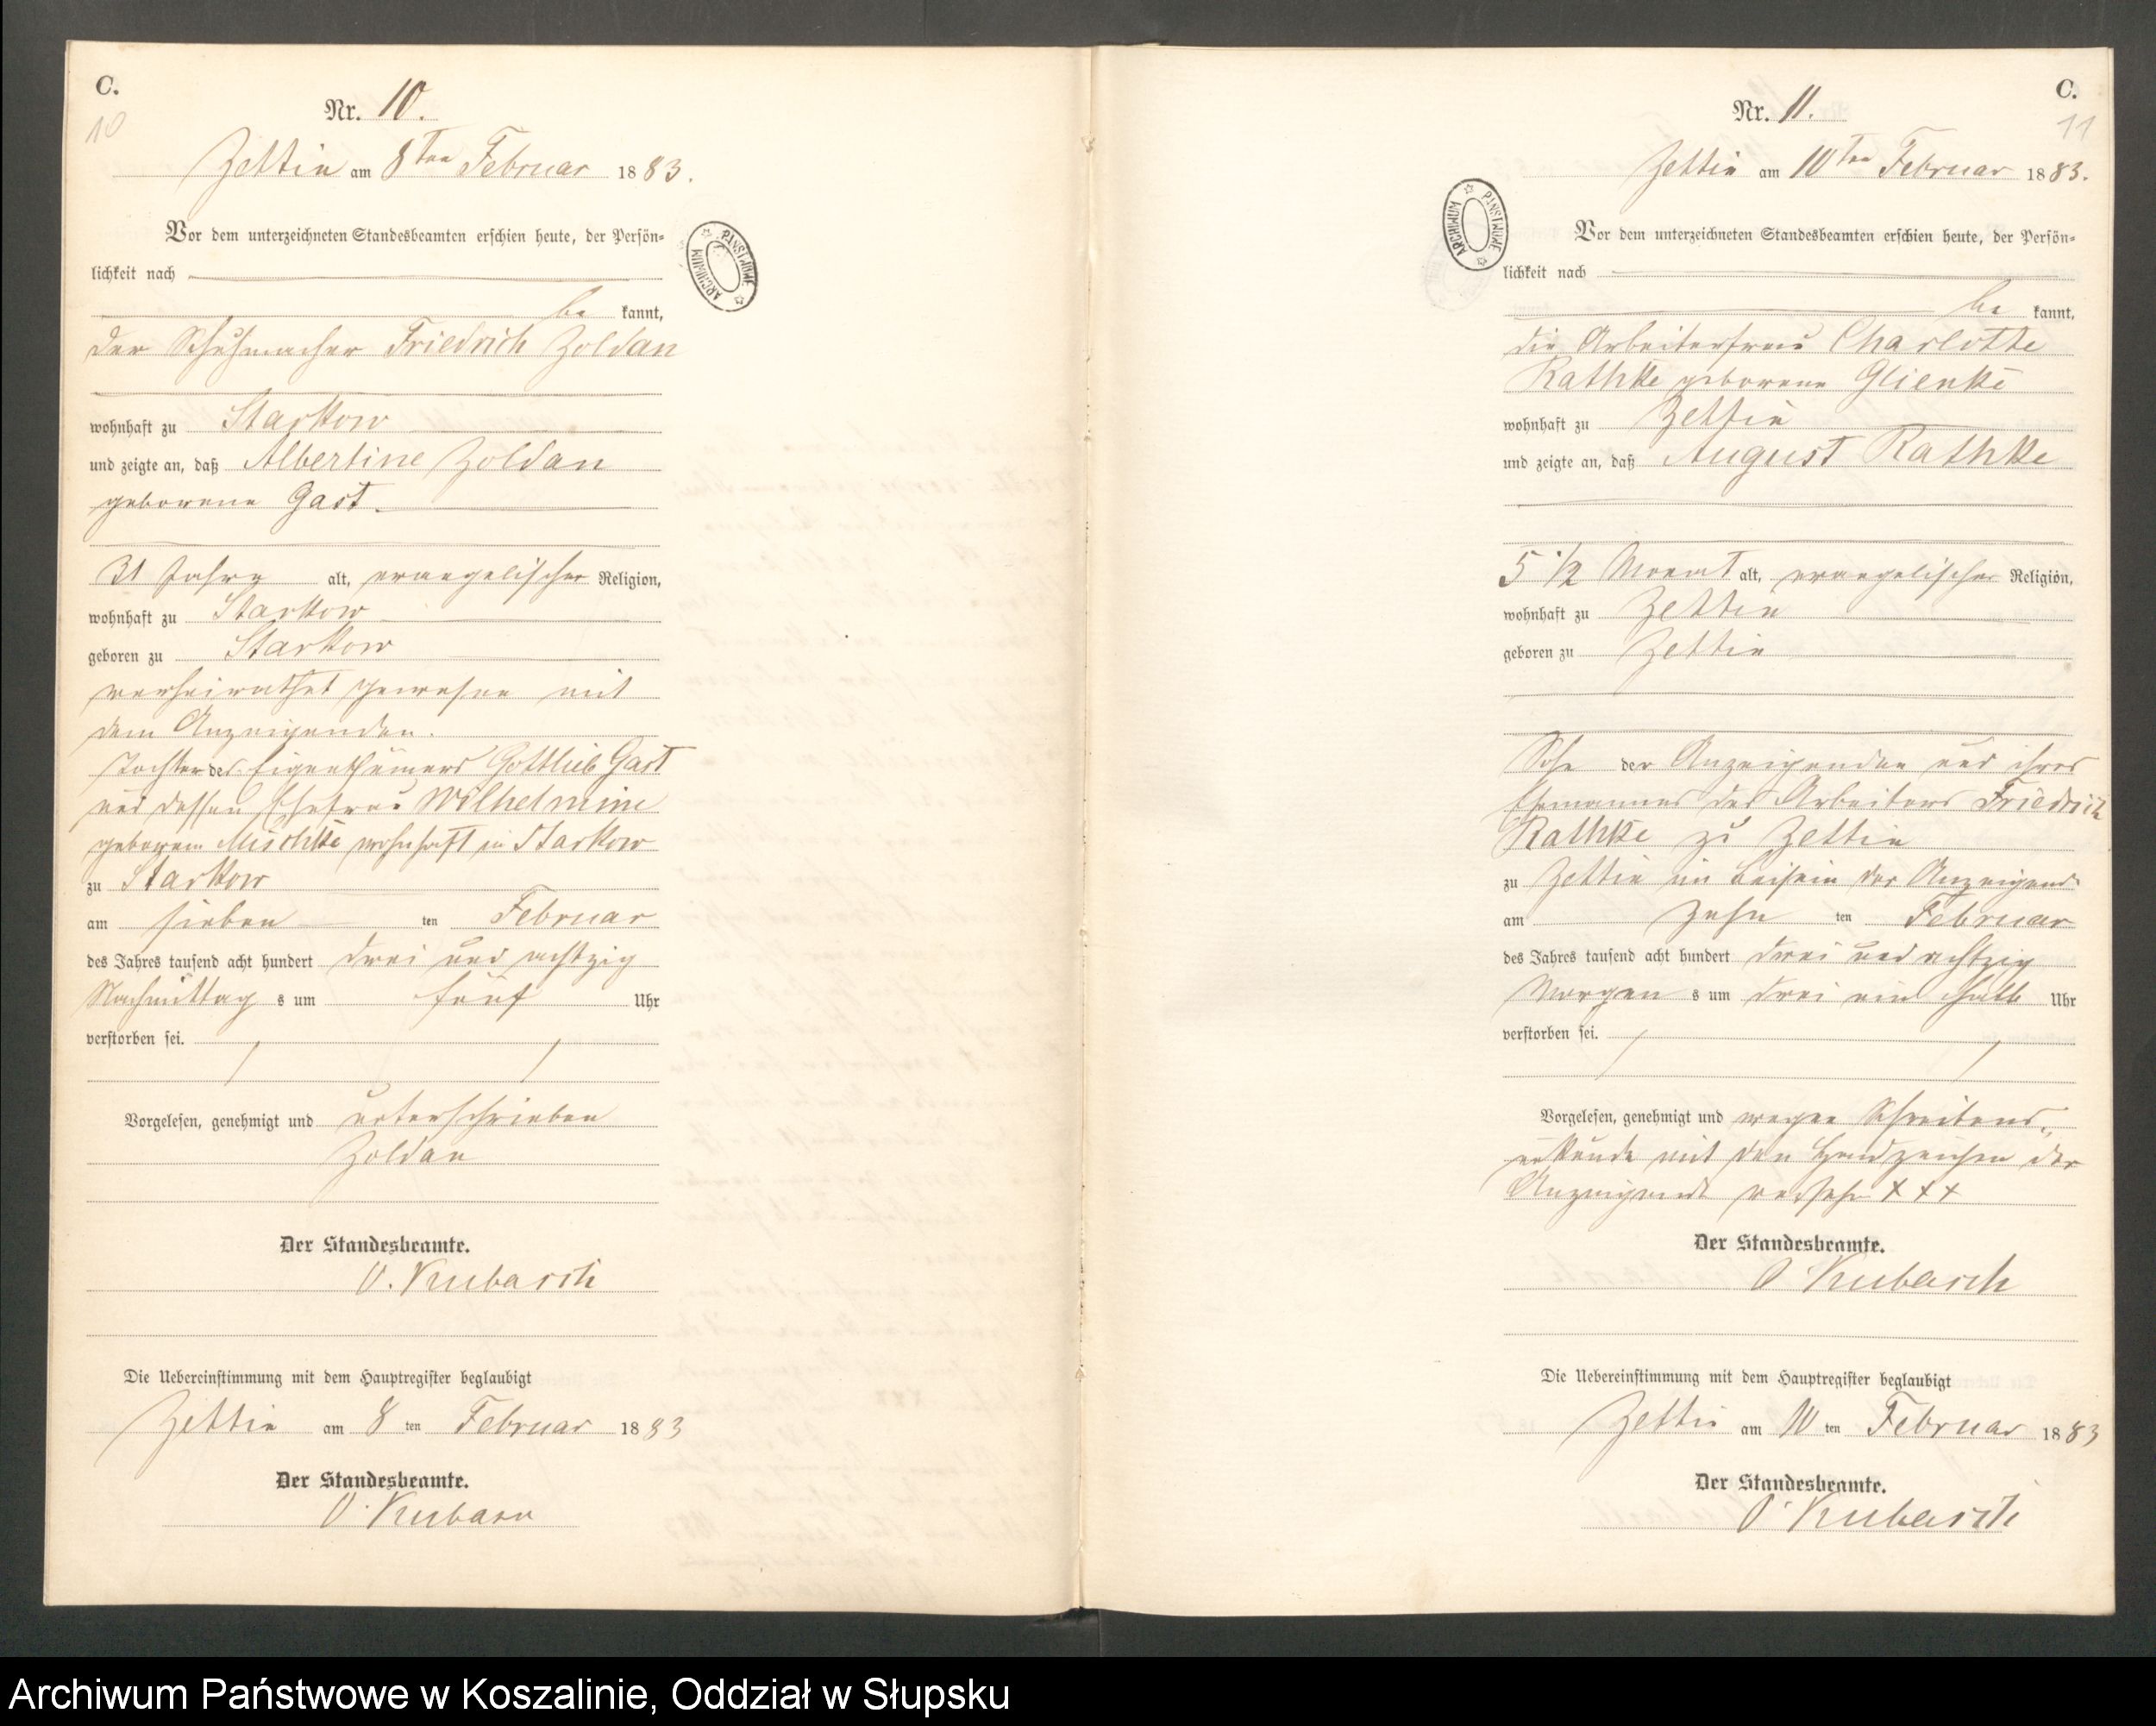 C.
10
Nr. 10.
Zettin am 8ten Februar 1883.
Vor dem unterzeichneten Standesbeamten erschien heute, der Persön-
lichkeit nach
be kannt,
der Schuhmacher Friedrich Zoldan
wohnhaft zu Starkow
und zeigte an, daß Albertine Zoldan
geborene Gast.
31 Jahre alt, evangelischer Religion,
wohnhaft zu Starkow
geboren zu Starkow
verheirathet gewesen mit
dem Anzeigenden.
Tochter des Eigenthümers Gottlieb Gast
und dessen Ehefrau Wilhelmine
geborene Mischke wohnhaft in Starkow
zu Starkow
am sieben ten Februar
des Jahres tausend acht hundert drei und achtzig
Nachmittag s um fünf Uhr
verstorben sei.
Vorgelesen, genehmigt und unterschrieben
Zoldan
Der Standesbeamte.
O. Kubasch
Die Uebereinstimmung mit dem Hauptregister beglaubigt
Zettin am 8 ten Februar 1883
Der Standesbeamte.
O. Kubasch
ARCHIWUM PAŃSTWOWE
C.
11
Nr. 11.
Zettin am 10ten Februar 1883.
Vor dem unterzeichneten Standesbeamten erschien heute, der Persön-
lichkeit nach
be kannt,
die Arbeiterfrau Charlotte
Rathke geborene Glienke
wohnhaft zu Zettin
und zeigte an, daß August Rathke
5 1/2 Monat alt, evangelischer Religion,
wohnhaft zu Zettin
geboren zu Zettin
Sohn der Anzeigenden und ihres
Ehemannes des Arbeiters Friedrich
Rathke zu Zettin
zu Zettin im Beisein der Anzeigend
am zehn ten Februar
des Jahres tausend acht hundert drei und achtzig
Morgen s um drei ein halb Uhr
verstorben sei.
Vorgelesen, genehmigt und wegen Schreibens-
unkunde mit den Handzeichen der
Anzeigende versehn + + +
Der Standesbeamte.
O Kubasch
Die Uebereinstimmung mit dem Hauptregister beglaubigt
Zettin am 10 ten Februar 1883
Der Standesbeamte.
O Kubasch
ARCHIWUM PAŃSTWOWE
Archiwum Państwowe w Koszalinie, Oddział w Słupsku